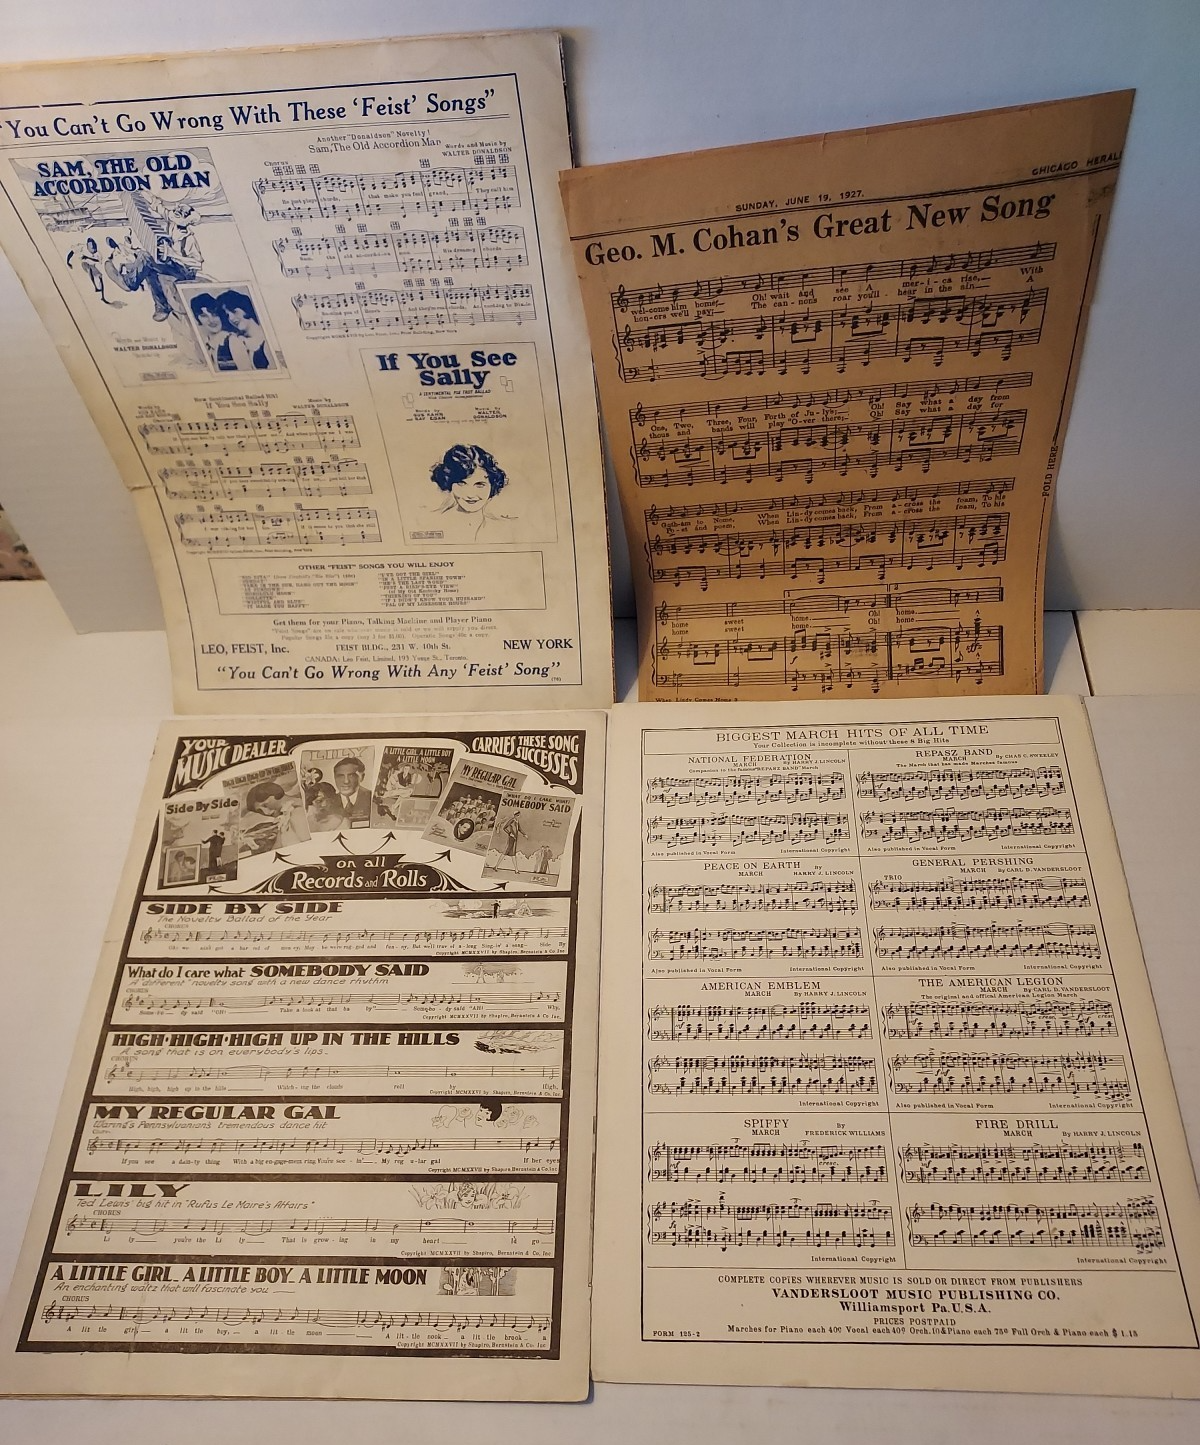 "You Can't Go Wrong With These 'Feist' Songs"
SAM, THE OLD
ACCORDION MAN
Another "Donaldson" Novelty!
Sam, The Old Accordion Man
Words and Music by
WALTER DONALDSON
Chorus
WALTER DONALDSON
If You See
Sally
A SENTIMENTAL FOX TROT BALLAD
Words by
GUS KAHN
and RAY EGAN
Music by
WALTER
DONALDSON
New Sentimental Ballad Hit!
If You See Sally
Music by
WALTER DONALDSON
OTHER "FEIST" SONGS YOU WILL ENJOY
"IN A LITTLE SPANISH TOWN"
"HE'S THE LAST WORD"
"JUST A BIRD'S-EYE VIEW"
(of My Old Kentucky Home)
"THINKING OF YOU"
"IF I DIDN'T KNOW YOUR HUSBAND"
Get them for your Piano, Talking Machine and Player Piano
LEO, FEIST, Inc.
FEIST BLDG., 231 W. 40th St.
NEW YORK
CANADA: Leo Feist, Limited, 193 Yonge St., Toronto.
"You Can't Go Wrong With Any 'Feist' Song"
SUNDAY, JUNE 19, 1927.
CHICAGO HERAL
Geo. M. Cohan's Great New Song
wel-come him home; Oh! wait and see A mer-i-ca rise, With
hon-ors we'll pay; The can-nons roar you'll hear in the sin A
One, Two, Three, Four, Forth of Ju-lys; Oh! Say what a day from
thous and bands will play "O-ver there; Oh! Say what a day for
Goth-am to Nome, When Lin-dy comes back, From a-cross the foam, To his
Po-et and poem, When Lin-dy comes back, From a-cross the foam, To his
home sweet home. Oh! home. A
home sweet home. Oh! home.
FOLD HERE
When Lindy Comes Home 3
YOUR
MUSIC DEALER
CARRIES THESE SONG
SUCCESSES
Side By Side
LILY
A LITTLE GIRL, A LITTLE BOY
A LITTLE MOON
MY REGULAR GAL
WHAT DO I CARE WHAT
SOMEBODY SAID
on all
Records and Rolls
SIDE BY SIDE
The Novelty Ballad of the Year
CHORUS
Oh! we ain't got a bar-rel of mon-ey, May-be we're rag-ged and fun-ny, But we'll trav-el a-long Sing-in' a song Side By
Copyright MCMXXVII by Shapiro, Bernstein & Co Inc
What do I care what SOMEBODY SAID
A "different" novelty song with a new dance rhythm
CHORUS
Some-bo-dy said "OH! Take a look at that ba by" Some-bo-dy said "AH! Why,
Copyright MCMXXVII by Shapiro, Bernstein & Co. Inc.
HIGH-HIGH-HIGH UP IN THE HILLS
A song that is on everybody's lips
CHORUS
High, high, high up in the hills Watch-ing the clouds roll by High,
Copyright MCMXXVI by Shapiro, Bernstein & Co. Inc.
MY REGULAR GAL
Waring's Pennsylvanian's tremendous dance hit
Chorus
If you see a dain-ty thing With a big en-gage-ment ring You're see-in' My reg u-lar gal If her eyes
Copyright MCMXXVII by Shapiro, Bernstein & Co Inc.
LILY
Ted Lewis' big hit in "Rufus Le Maire's Affairs"
CHORUS
Li ly you're the Li ly That is grow-ing in my heart I'd go
Copyright MCMXXVII by Shapiro, Bernstein & Co. Inc.
A LITTLE GIRL_ A LITTLE BOY_ A LITTLE MOON
An enchanting waltz that will fascinate you
CHORUS
A lit tle girl, a lit tle boy, a lit tle moon A lit-tle nook a lit tle brook a
Copyright MCMXXVII by Shapiro, Bernstein & Co Inc.
BIGGEST MARCH HITS OF ALL TIME
Your Collection is incomplete without these 8 Big Hits
NATIONAL FEDERATION
MARCH By HARRY J. LINCOLN
Companion to the famous "REPASZ BAND" March
Also published in Vocal Form International Copyright
REPASZ BAND
MARCH By CHAS C. SWEELEY
The March that has made Marches famous
Also published in Vocal Form International Copyright
PEACE ON EARTH
MARCH By HARRY J. LINCOLN
Also published in Vocal Form International Copyright
GENERAL PERSHING
MARCH By CARL D. VANDERSLOOT
TRIO
Also published in Vocal Form International Copyright
AMERICAN EMBLEM
MARCH By HARRY J. LINCOLN
International Copyright
THE AMERICAN LEGION
MARCH By CARL D. VANDERSLOOT
The original and offical American Legion March
Also published in Vocal Form International Copyright
SPIFFY
MARCH By FREDERICK WILLIAMS
International Copyright
FIRE DRILL
MARCH By HARRY J. LINCOLN
International Copyright
COMPLETE COPIES WHEREVER MUSIC IS SOLD OR DIRECT FROM PUBLISHERS
VANDERSLOOT MUSIC PUBLISHING CO.
Williamsport Pa. U.S.A.
PRICES POSTPAID
FORM 125-2
Marches for Piano each 40¢ Vocal each 40¢ Orch. 10 & Piano each 75¢ Full Orch & Piano each $ 1.15